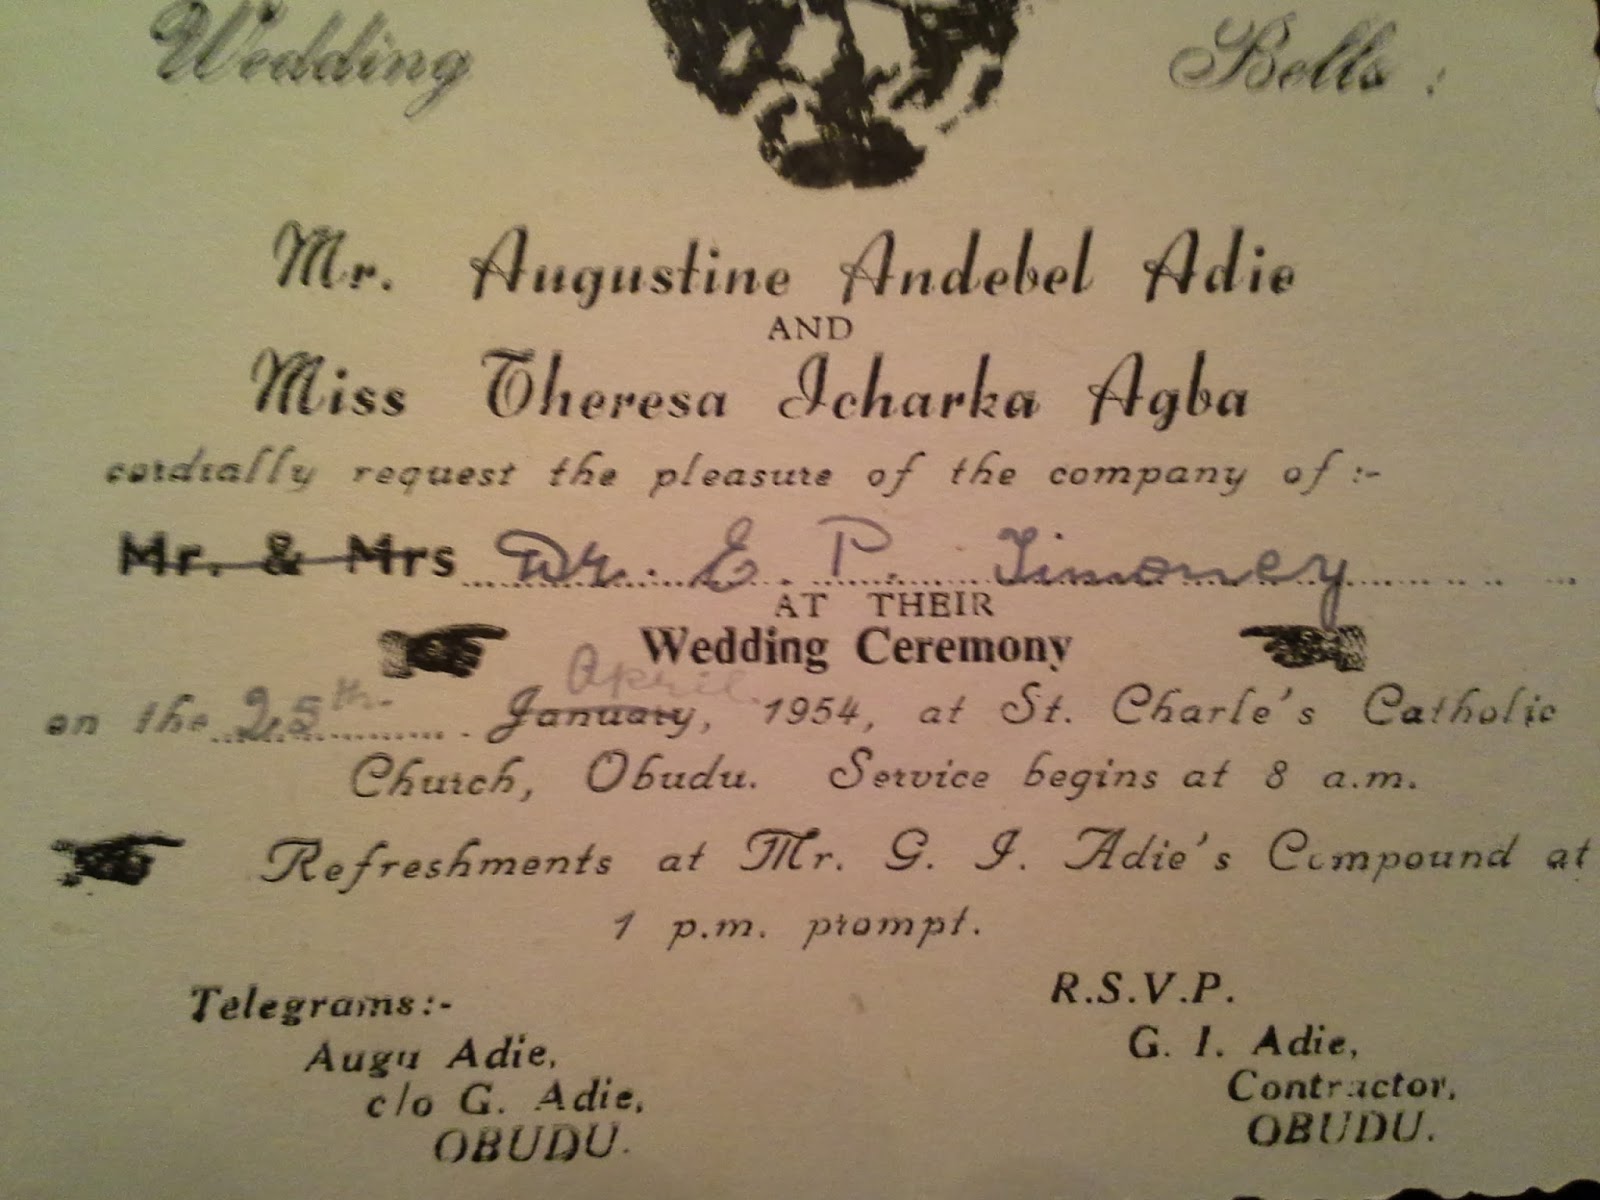 Wedding Bells :
Mr. Augustine Andebel Adie
AND
Miss Theresa Icharka Agba
cordially request the pleasure of the company of :-
Mr. & Mrs Dr. E. P. Timoney
AT THEIR
Wedding Ceremony
April
on the 25th. January, 1954, at St. Charle's Catholic
Church, Obudu. Service begins at 8 a.m.
Refreshments at Mr. G. I. Adie's Compound at
1 p.m. prompt.
Telegrams:-
Augu Adie,
c/o G. Adie,
OBUDU.
R.S.V.P.
G. I. Adie,
Contractor,
OBUDU.